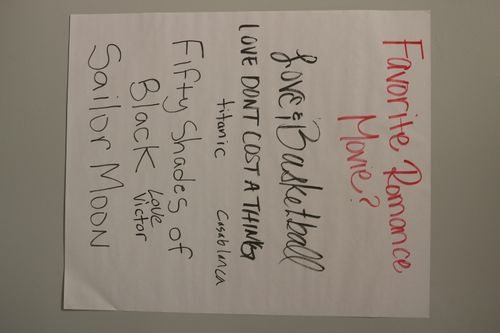 Favorite Romance
Movie?
Love & Basketball
LOVE DONT COST A THING
titanic
Casablanca
Fifty Shades of
Black
Love
Victor
Sailor Moon